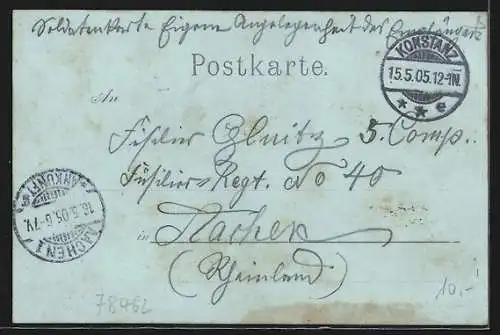 Soldatenkarte Eigene Angelegenheit des Empfängers
Postkarte.
KONSTANZ
15.5.05.12-1N.
* * e
An
Füsilier
5. Comp.
Füsilier Regt. No 40
in Aachen
(Rheinland)
ANKUNFT
16.5.05.6-7V.
AACHEN 1
78462
10.-